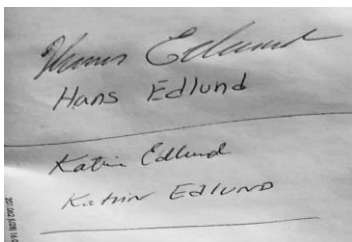 Hans Edlund
Hans Edlund
Katrin Edlund
Katrin Edlund